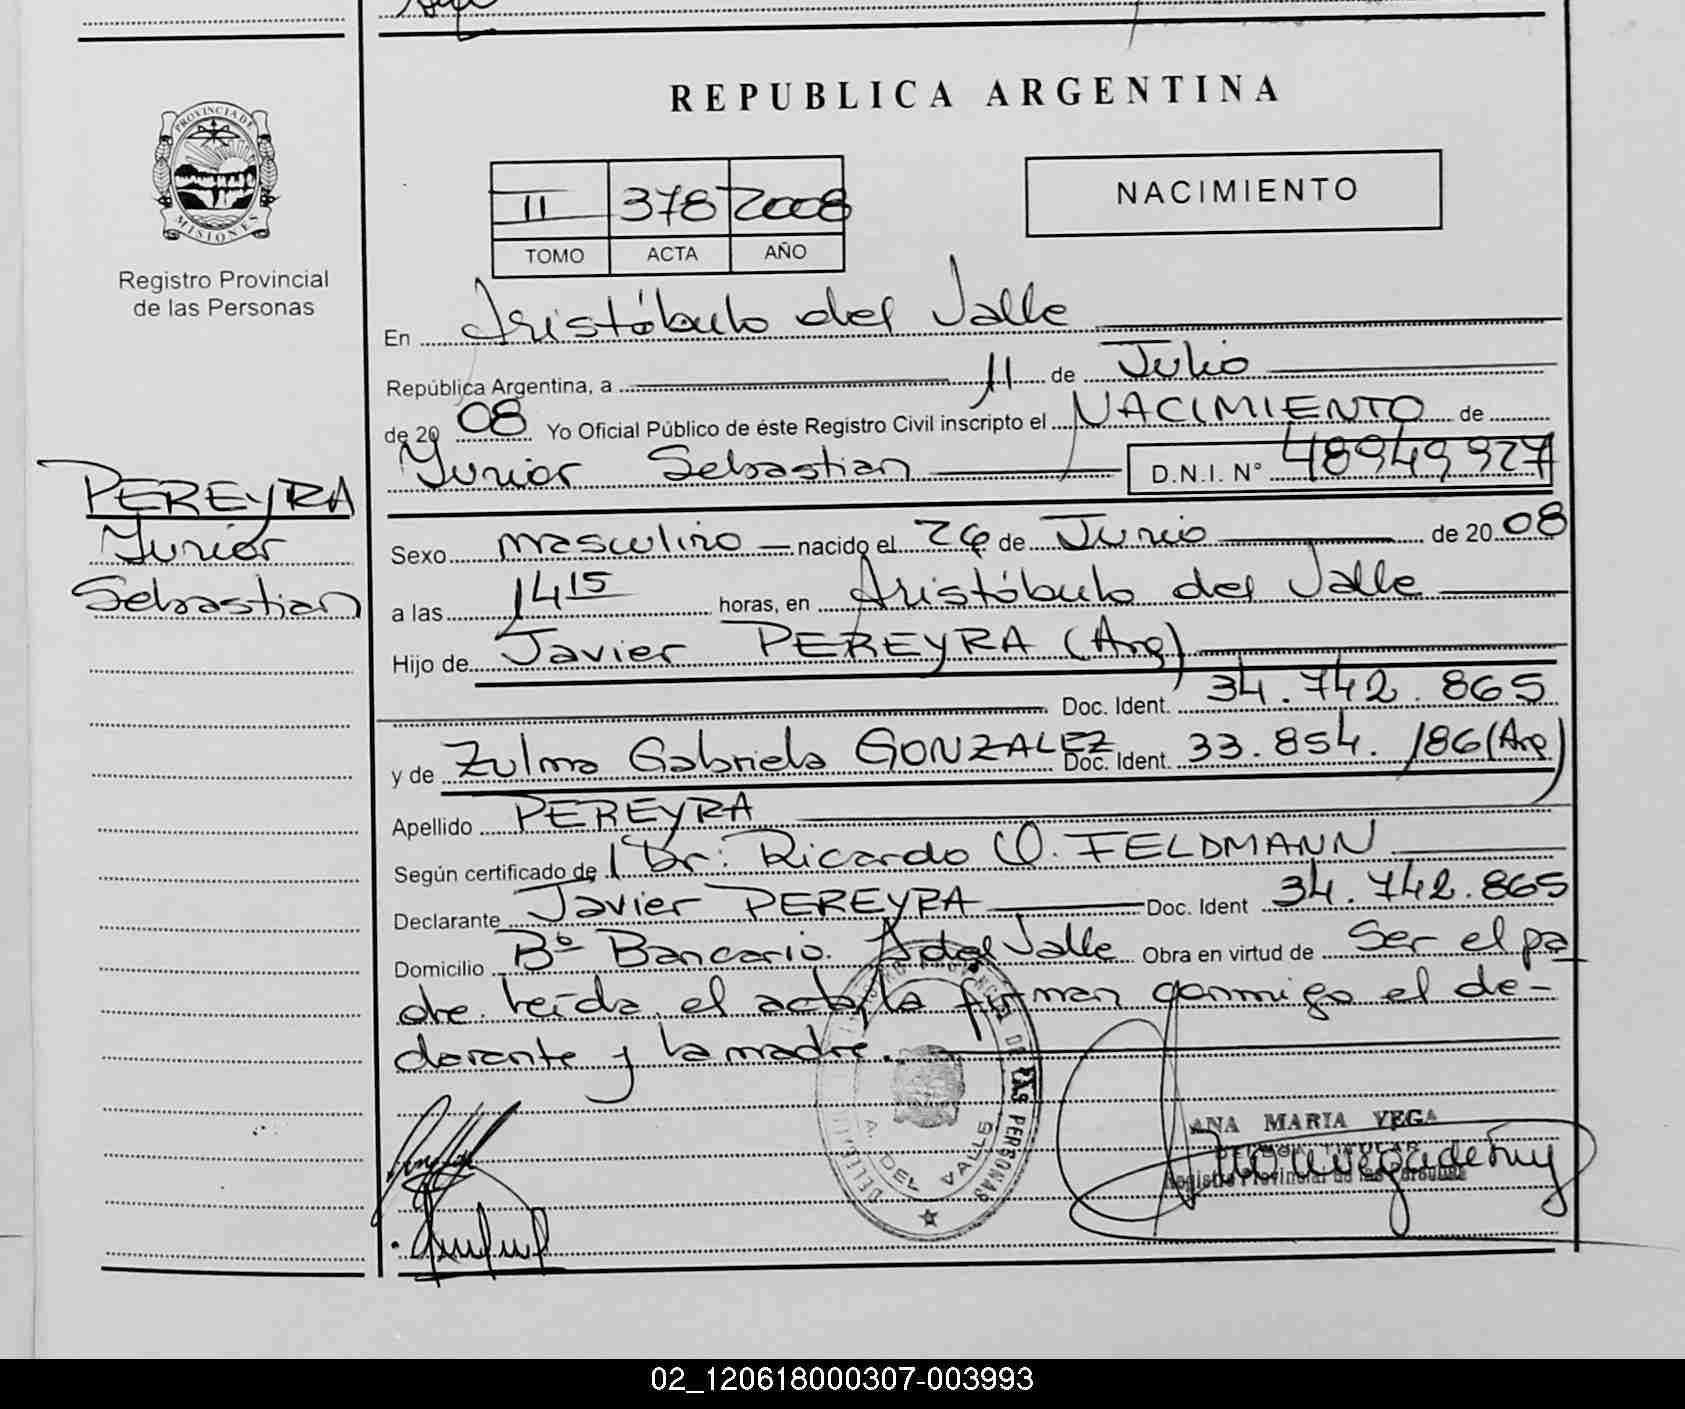 REPUBLICA ARGENTINA
PROVINCIA DE MISIONES
Registro Provincial
de las Personas
NACIMIENTO
II 378 2008
TOMO ACTA AÑO
En Aristóbulo del Valle
República Argentina, a 11 de Julio
de 2008 Yo Oficial Público de éste Registro Civil inscripto el NACIMIENTO de
Yunior Sebastian D.N.I. N° 48949927
PEREYRA
Yunior
Sebastian
Sexo masculino nacido el 26 de Junio de 2008
a las 14 15 horas, en Aristóbulo del Valle
Hijo de Javier PEREYRA (Arg)
Doc. Ident. 34.742.865
y de Zulma Gabriela GONZALEZ Doc. Ident. 33.854.186 (Arg)
Apellido PEREYRA
Según certificado de Dr: Ricardo O. FELDMANN
Declarante Javier PEREYRA Doc. Ident 34.742.865
Domicilio B° Bancario. A del Valle Obra en virtud de Ser el pa
dre. leída el acta, la firman conmigo el de-
clarante y la madre.
DE LAS PERSONAS
A. DEL VALLE
ANA MARIA VEGA
Registro Provincial de las Personas
02_120618000307-003993